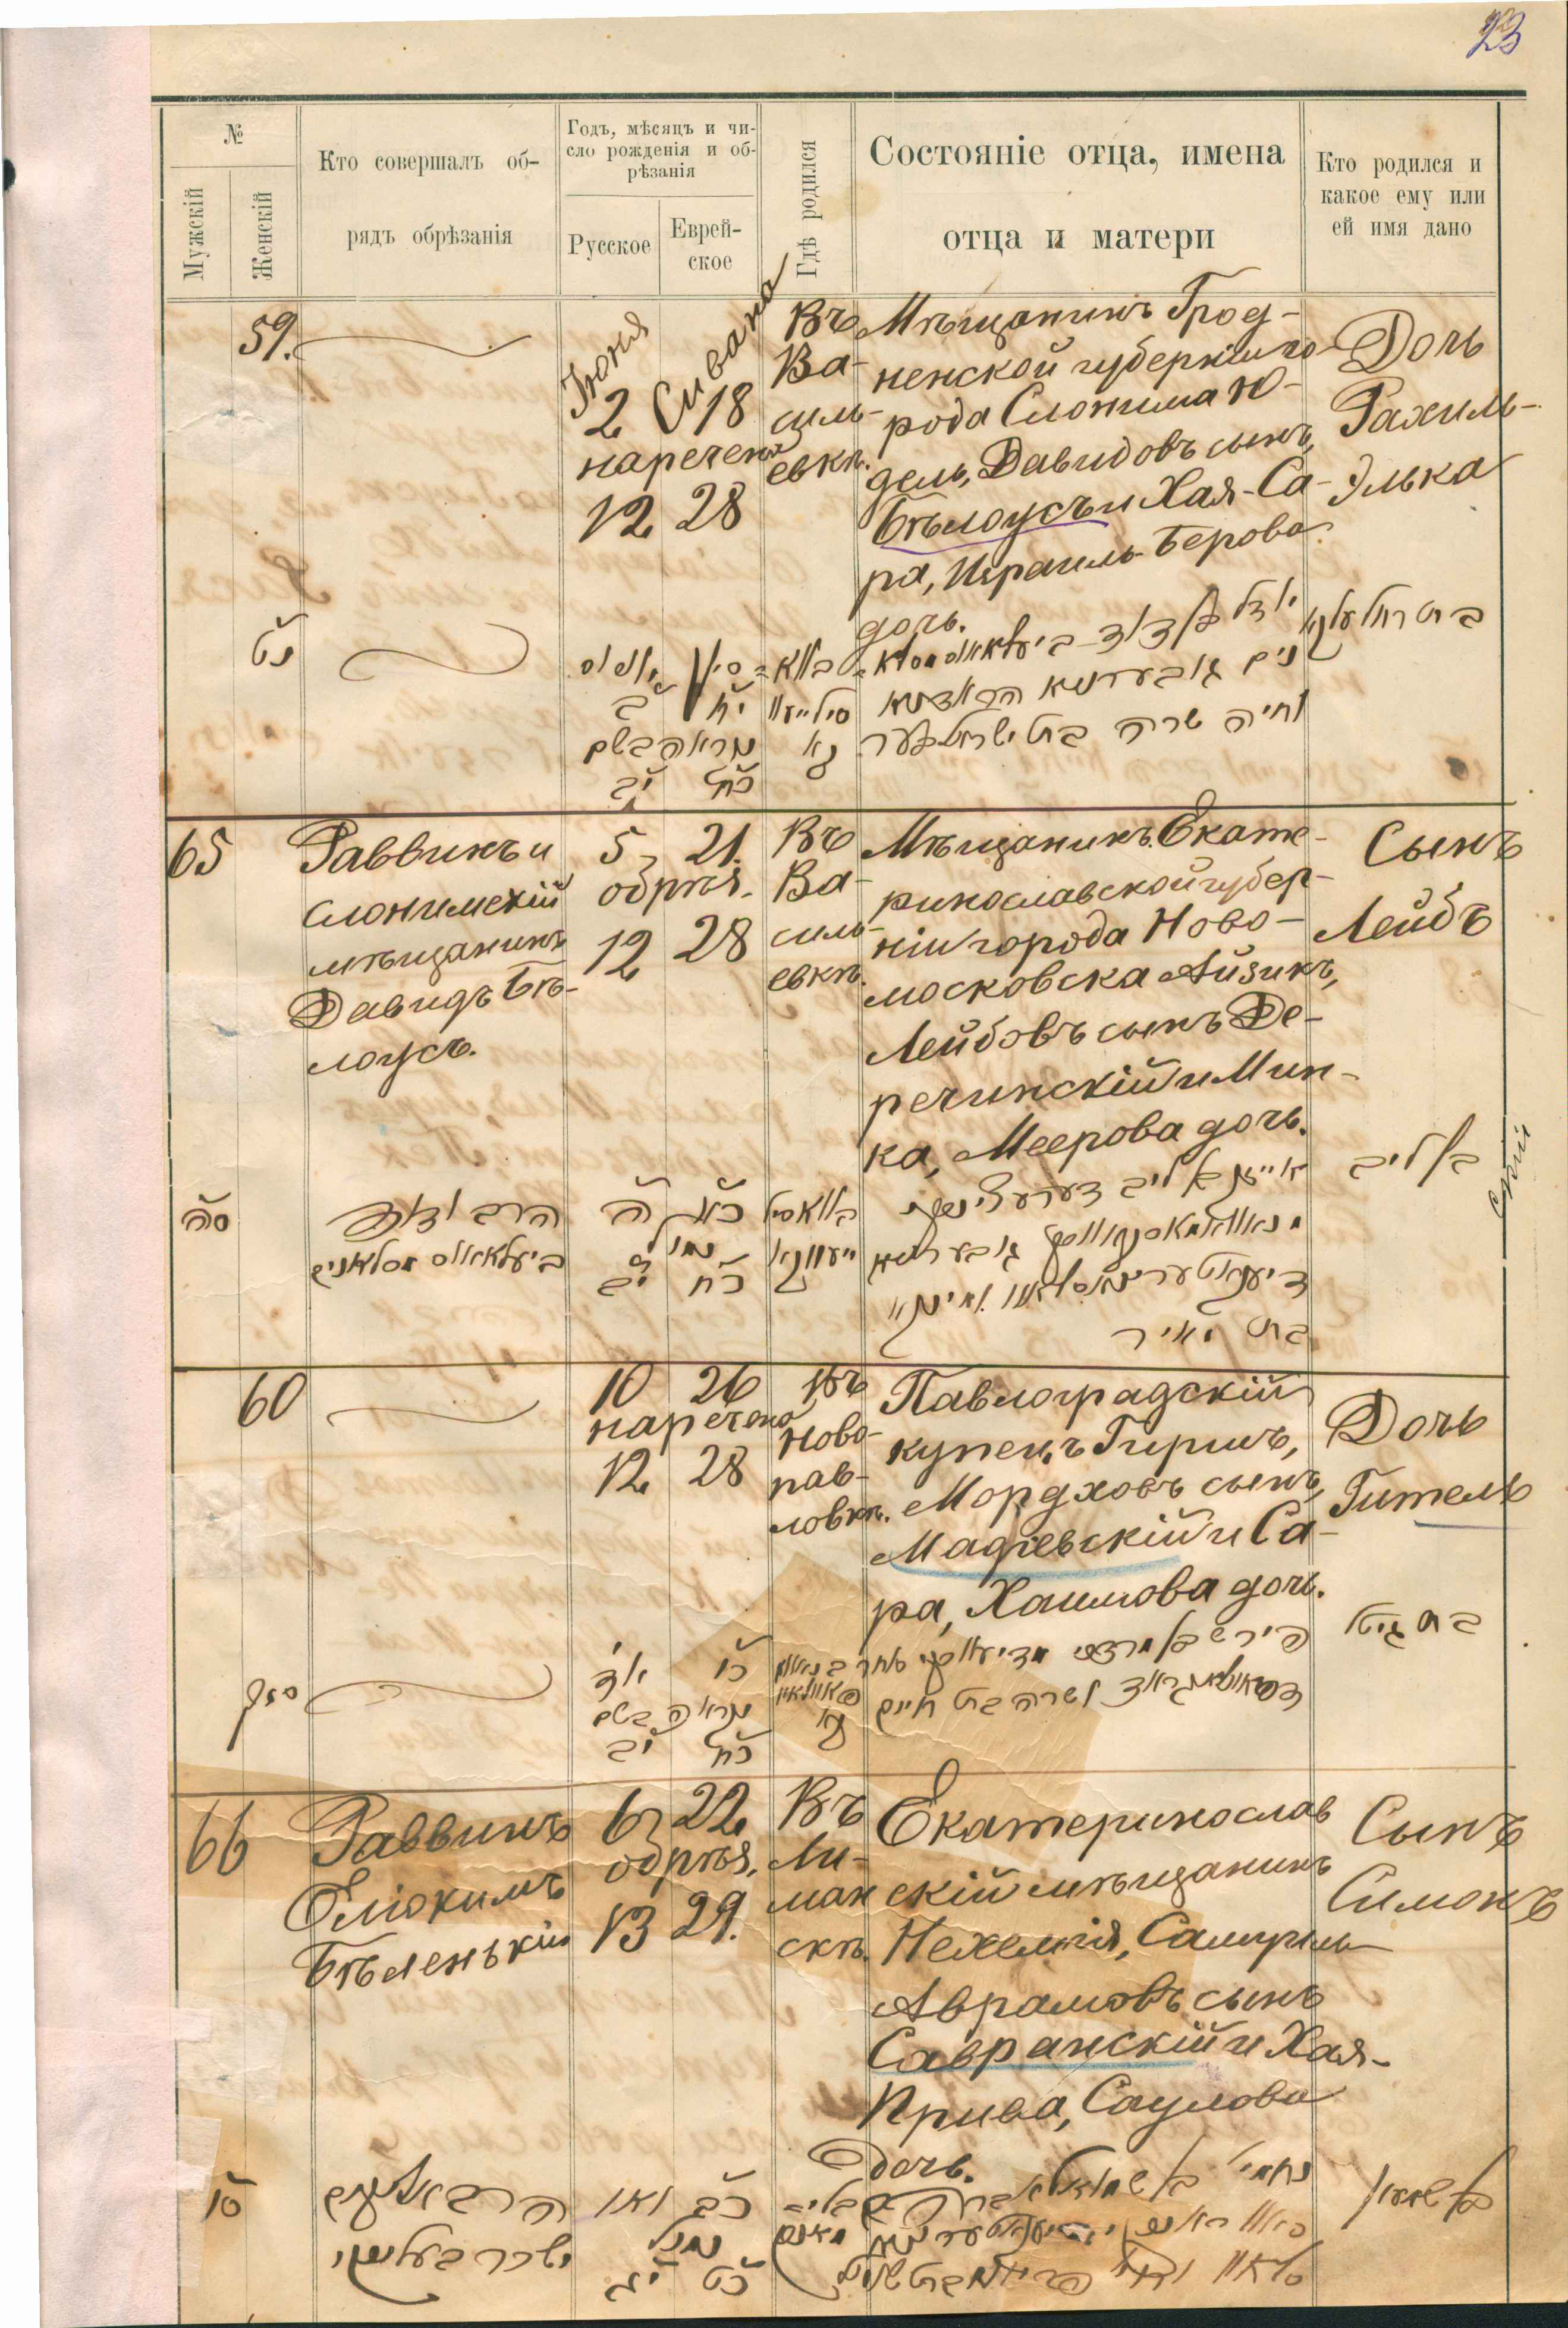 23
№
Мужскій
Женскій
Кто совершалъ об-
рядъ обрѣзанія
Годъ, мѣсяцъ и чи-
сло рожденія и об-
рѣзанія
Русское
Еврей-
ское
Гдѣ родился
Состояніе отца, имена
отца и матери
Кто родился и
какое ему или
ей имя дано
59.
Іюня
2
Сивана
18
наречена
12 28
Въ
Ва-
силь-
евкѣ.
Мѣщанинъ Грод-
ненской губерніи го-
рода Слонима Ю-
дель, Давидовъ сынъ,
Бѣлоусъ и Хая-Са-
ра, Израиль-Берова
дочь.
Дочь
Рахиль-
Элька
נט
יח ב
נקראה בשם
כח יב
וחיה שרה בת ישראל בער
65
Раввинъ и
слонимскій
мѣщанинъ
Давидъ Бѣ-
лоусъ.
5 21.
обрѣз.
12 28
Въ
Ва-
силь-
евкѣ.
Мѣщанинъ Екате-
ринославской губер-
ніи города Ново-
московска Айзикъ,
Лейбовъ сынъ Де-
речинскій и Мин-
ка, Меерова дочь.
Сынъ
Лейбъ
סה
הרב ודוד
כא ה
נמול
כח יב
בת מאיר
בן ליב
60
10 26
наречена
12 28
Въ
Ново-
пав-
ловкѣ.
Павлоградскій
купецъ Гиршъ,
Мордховъ сынъ,
Мадіевскій и Са-
ра, Хаимова дочь.
Дочь
Гитель
כו
נקראה בשם
כח יב
ושרה בת חיים
בת גיטל
66
Раввинъ
Еліокимъ
Бѣленькій
6 22.
обрѣз.
13 29.
Въ
Ли-
ман
скѣ.
Екатеринослав
скій мѣщанинъ
Нехемія, Самуиль
Аврамовъ сынъ
Савранскій и Хая-
Прива, Саулова
дочь.
Сынъ
Симонъ
סו
כב ואו
נמול
כט יג
בן שמעון